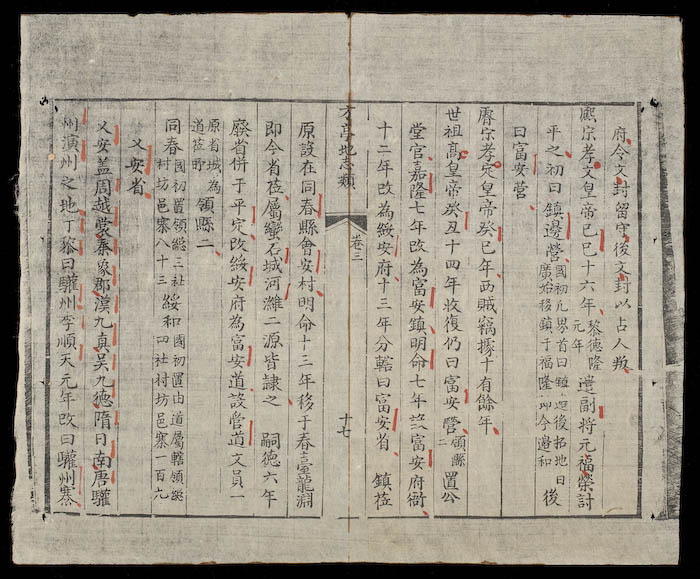 府今文封留守後文封以占人叛
熙宗孝文皇帝己巳十六年黎德隆元年遣副將元福榮討
平之初曰鎮邊營國初凡界首曰鎮邊後拓地日廣始移鎮于福隆即今邊和後
曰富安營
睿宗孝定皇帝癸巳年西賊竊據十有餘年
世祖高皇帝癸丑十四年收復仍曰富安營領縣二置公
堂官嘉隆七年改為富安鎮明命七年設富安府衙
十二年改為綏安府十三年分轄曰富安省 鎮莅
方亭地志類 卷三 十七
原設在同春縣會安村明命十三年移于春臺龍淵
即今省莅屬蠻石城河濰二源皆隸之 嗣德六年
廢省併于平定改綏安府為富安道設管道文員一
原省城為道莅所領縣二
同春國初置領總三社村坊邑寨八十三 綏和國初置由道屬轄領總四社村坊邑寨一百九
乂安省
乂安蓋周越裳秦象郡漢九真吳九德隋日南唐驩
州演州之地丁黎曰驩州李順天元年改曰驩州寨